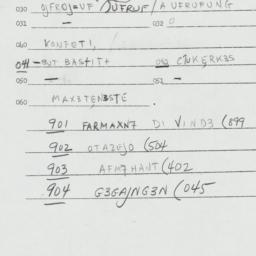 030 GFROJ=UF JUFRUF / A UFRUFUNG
031 – 032 0
040 KONFETI,
041 – BUT BASTIT+ 042 CJUKERK3S
050 – 051 –
060 MAX3TEN3STE .
901 FARMAXN7 DI VIND3 (899
902 OTAZEJO (504
903 AFM7HANT (402
904 G3GAJNG3N (045